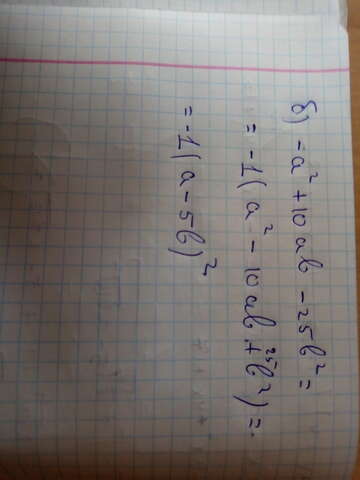 б) -a² + 10ab - 25b² =
= -1(a² - 10ab + 25b²) =
= -1(a - 5b)²